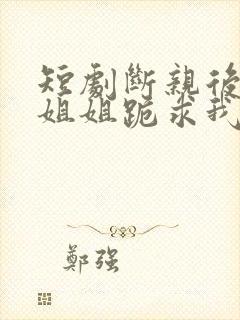 短劇斷親後
姐姐跪求我
鄭強